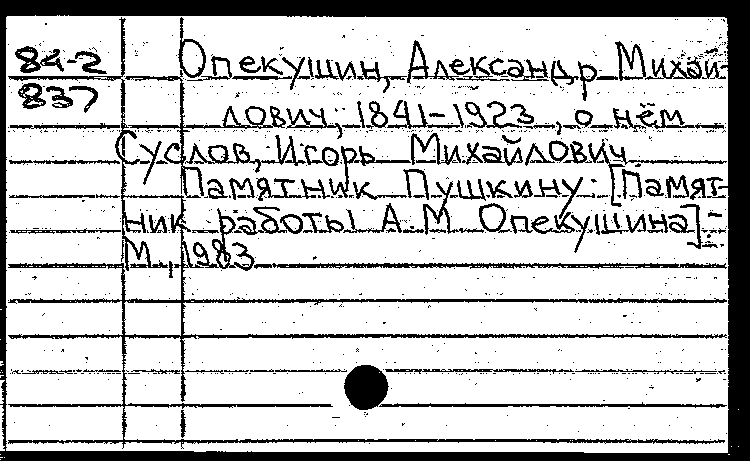 84-2
837
Опекушин, Александр Михай-
лович, 1841-1923, о нём
Суслов, Игорь Михайлович.
Памятник Пушкину: [Памят-
ник работы А.М Опекушина].-
М., 1983